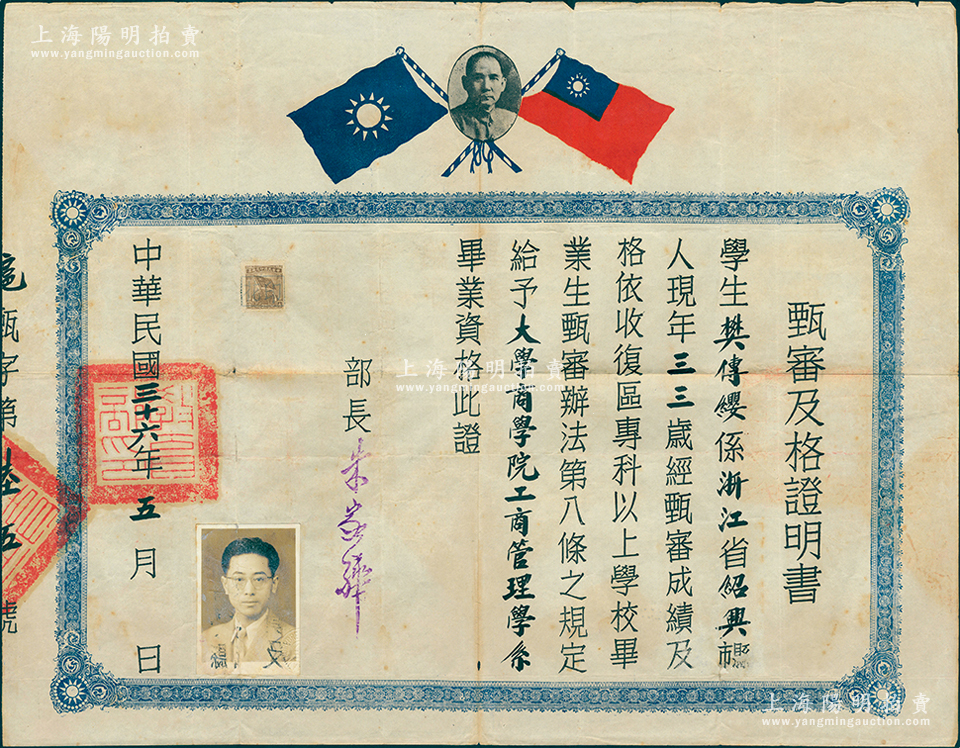 上海陽明拍賣
www.yangmingauction.com
甄審及格證明書
學生樊傳纓係浙江省紹興縣市
人現年三三歲經甄審成績及
格依收復區專科以上學校畢
業生甄審辦法第八條之規定
給予大學商學院工商管理學系
畢業資格此證
部長朱家驊
中華民國三十六年五月 日
滬甄字第陸五號
上海陽明拍賣
www.yangmingauction.com
上海陽明拍賣
www.yangmingauction.com